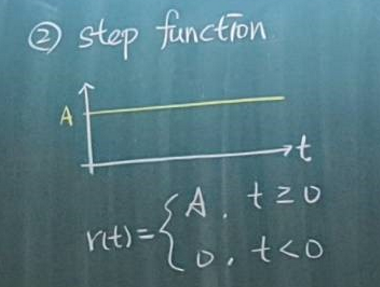 ② step function
A
t
r(t) = { A, t ≥ 0
0, t < 0